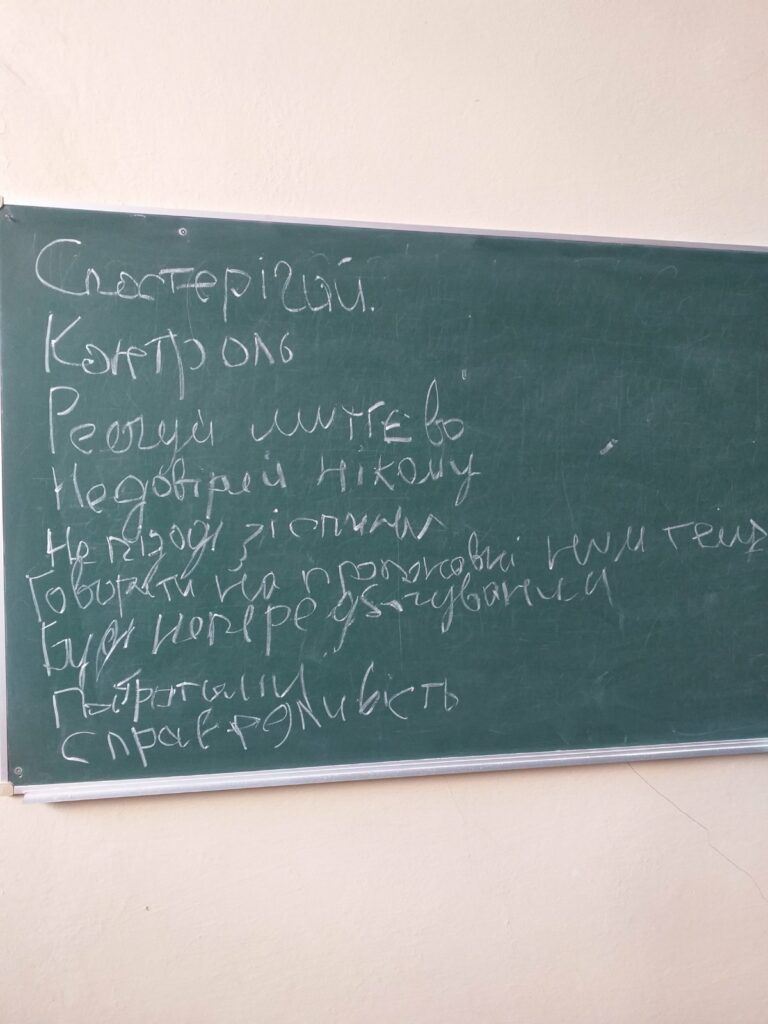 Спостерігай.
Контроль
Реагуй миттєво
Недовіряй нікому
Не підходь зі спини
Говорити на пропоновані ним теми
Будь непередбачуваним
Патроталий
справедливість